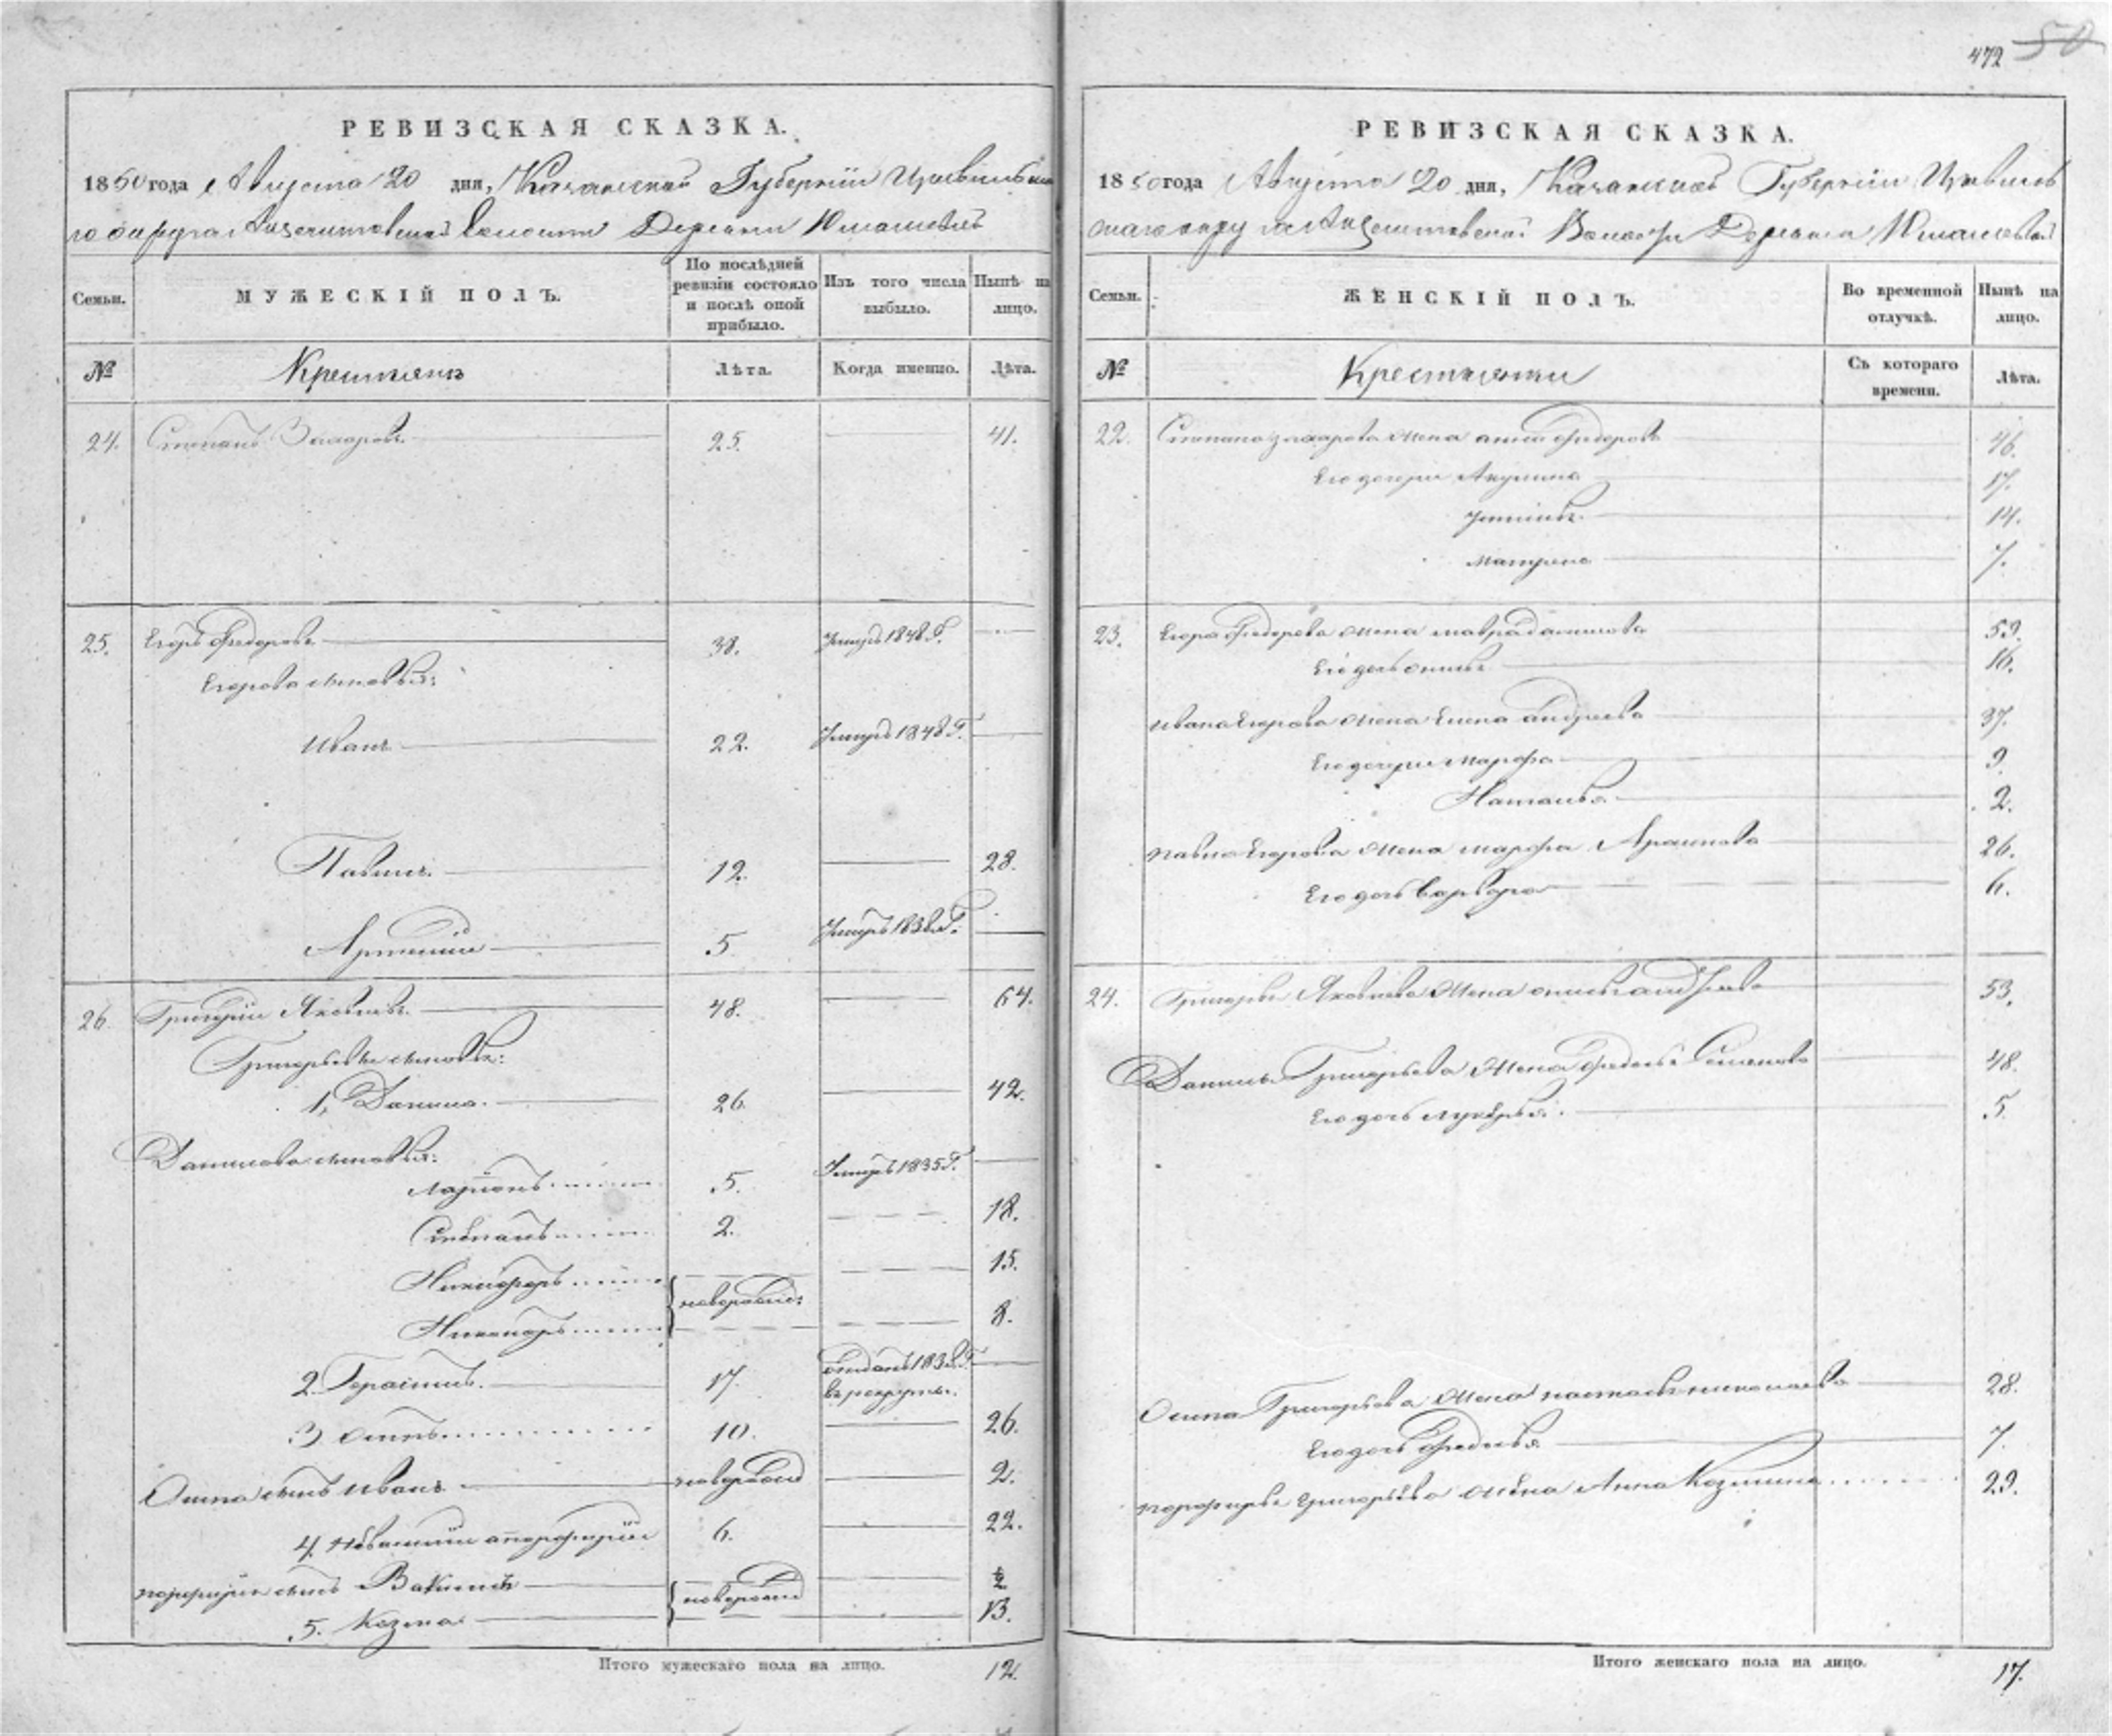 472 50
РЕВИЗСКАЯ СКАЗКА.
1850 года Августа 20 дня, Казанской Губернiи Цывильска
го округа Волости Деревни Юмашевой
Семьи.
МУЖЕСКIЙ ПОЛЪ.
По послѣдней ревизiи состояло и послѣ оной прибыло.
Изъ того числа выбыло.
Нынѣ на лицо.
№
Крестьянъ
Лѣта.
Когда именно.
Лѣта.
24. Степанъ Захаровъ 25. 41.
25. Егоръ Федоровъ 38. Умеръ 1848 Г.
Егорова сыновья:
Иванъ 22. Умеръ 1848 Г.
Павелъ 12. 28.
Артемiй 5 Умеръ 1838 Г.
26. Григорiй Яковлевъ 48. 64.
Григорьевы сыновья:
1, Данила 26 42.
Данилова сыновья:
Ларiонъ 5. Умеръ 1835 Г.
Степанъ 2. 18.
Никифоръ новорожден: 15.
Никаноръ 8.
2. Герасимъ 17. отданъ 1838 Г. в рекруты.
3 Осипъ 10. 26.
Осипа сынъ Иванъ новорожден 2.
4. порфирiй 6. 22.
порфирiя сынъ новорожден 1/2
5. Козма 13.
Итого мужескаго пола на лицо. 12.
РЕВИЗСКАЯ СКАЗКА.
1850 года Августа 20 дня, Казанской Губернiи Цывиль
скаго округа Волости Деревни Юмашевой
Семьи.
ЖЕНСКIЙ ПОЛЪ.
Во временной отлучкѣ.
Нынѣ на лицо.
№
Крестьянки
Съ котораго времени.
Лѣта.
22. Степана Захарова жена Федорова 46.
Его дочери Акулина 17.
14.
Матрена 7.
23. Егора Федорова жена мавра 59.
Его дочь 16.
Ивана Егорова жена Елена андреева 37.
Его дочери Марфа 9
Наталья 2.
Павла Егорова жена марфа 26.
Его дочь Варвара 6.
24. Григорья Яковлева жена 53.
Данилы Григорьева жена Федосья Семенова 48.
Его дочь Лукерья 5
Осипа Григорьева жена настасья николаева 28.
Его дочь Федосья 7.
порфирья григорьева жена Анна Козмина 23.
Итого женскаго пола на лицо. 17.